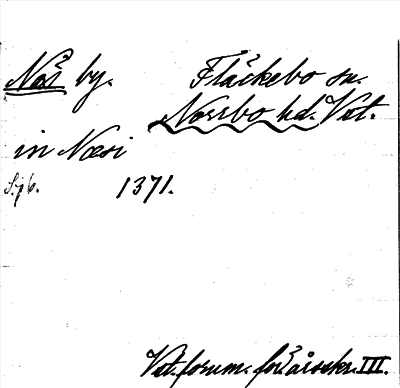 Nör by. Fläckebo sn.
Norrbo hd. Vstm.
in Nœsi
Sjb. 1371.
Vstm. fornm. för. årsskr. III.